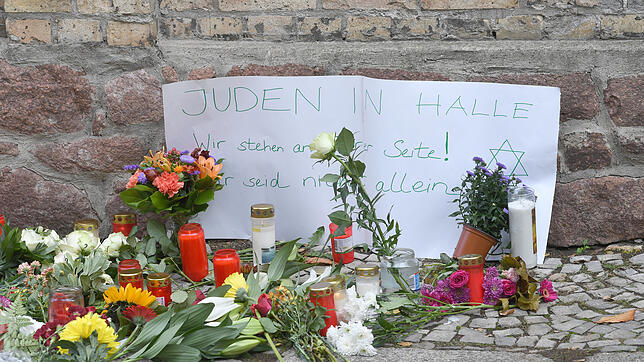 JUDEN IN HALLE
Wir stehen an Seite!
seid allein